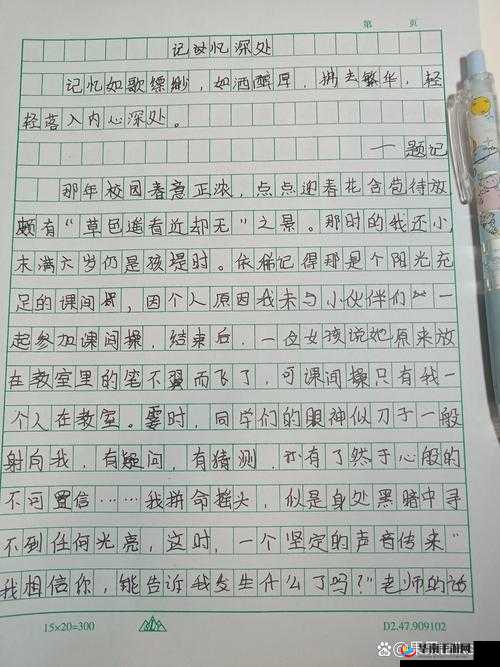 第 页
记忆深处
记忆如歌缥缈，如酒醇厚，拂去繁华，轻
轻落入内心深处。
——题记
那年校园春意正浓，点点迎春花含苞待放
颇有“草色遥看近却无”之景。那时的我还小
未满六岁仍是孩提时。依稀记得那是个阳光充
足的课间，因个人原因我未与小伙伴们一
起参加课间操，结束后，一位女孩说她原来放
在教室里的笔不翼而飞了，可课间操只有我一
个人在教室。霎时，同学们的眼神似刀子一般
射向我，有疑问，有猜测，亦有了然于心般的
不可置信……我拼命摇头，似是身处黑暗中寻
不到任何光亮，这时，一个坚定的声音传来“
我相信你，能告诉我发生什么了吗？”老师的话
15×20=300
D2.47.909102